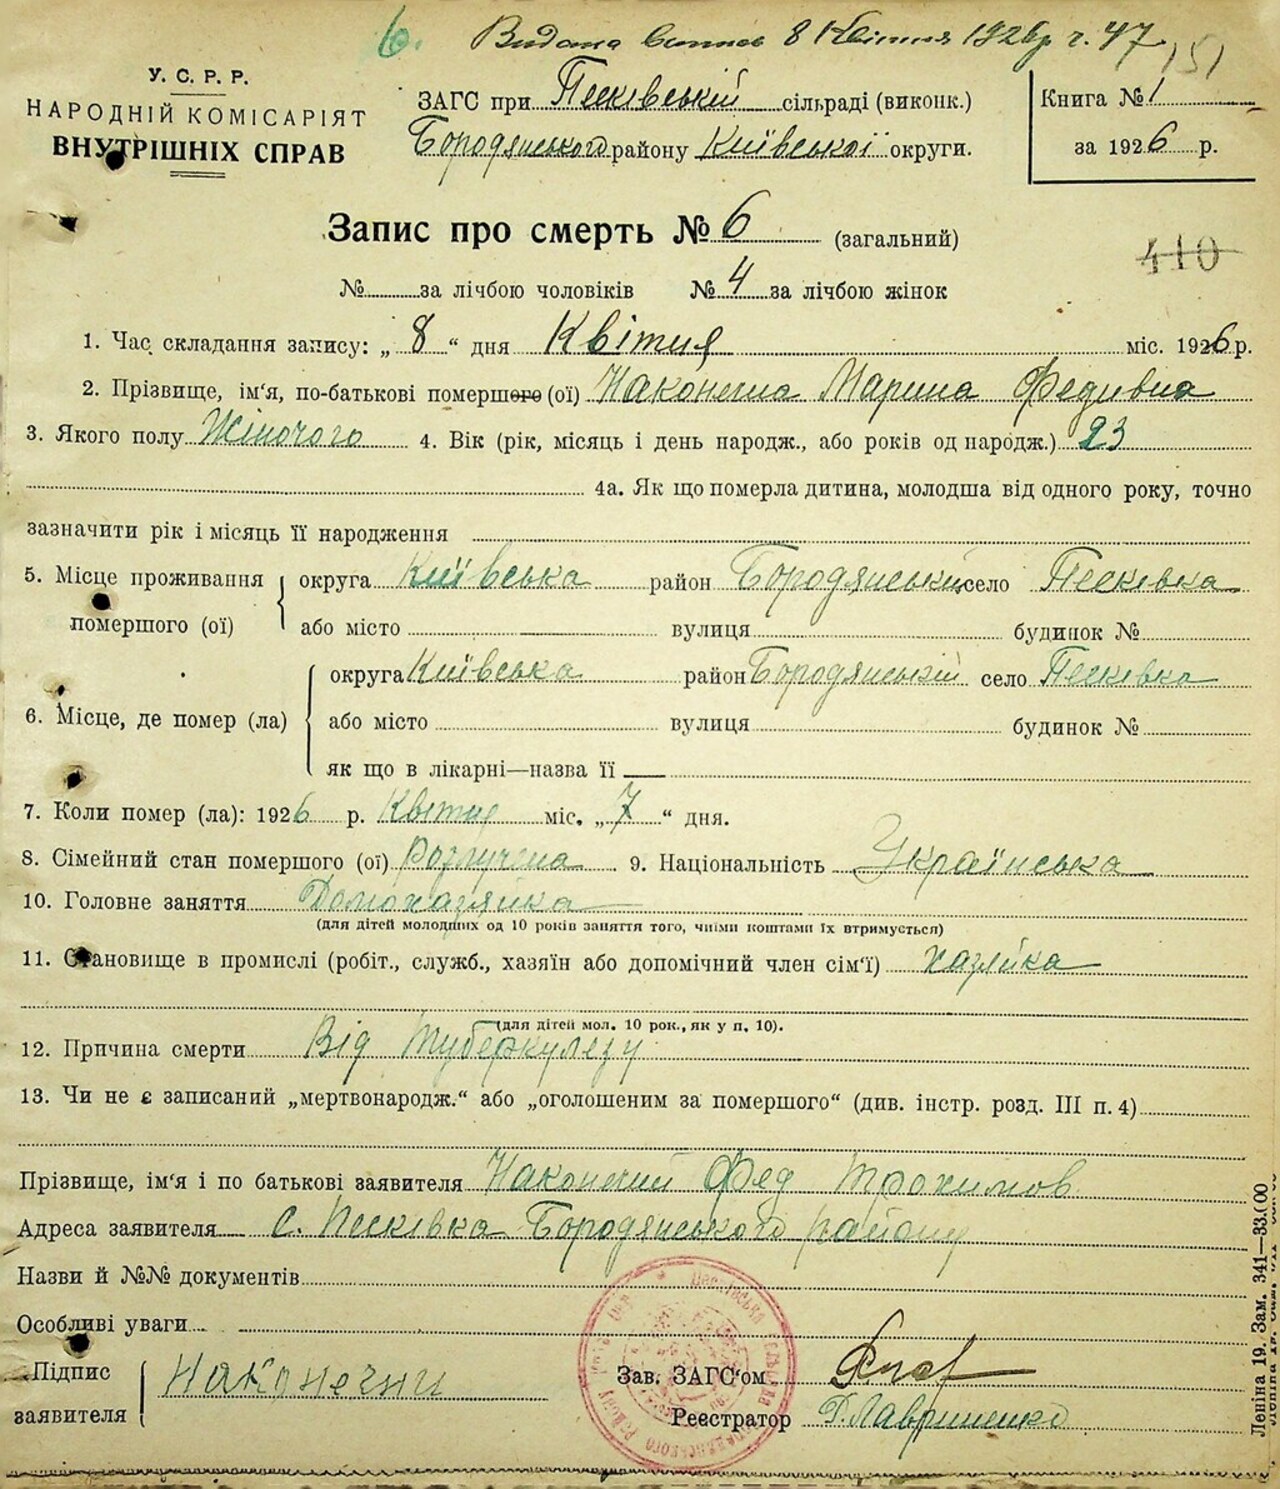 6. Видано виписъ 8 Квітня 1926 р. ч. 47
151
У. С. Р. Р.
НАРОДНІЙ КОМІСАРІЯТ
ВНУТРІШНІХ СПРАВ
ЗАГС при Песківській сільраді (виконк.)
Бородянського району Київської округи.
Книга № 1
за 1926 р.
Запис про смерть № 6 (загальний)
410
№ за лічбою чоловіків № 4 за лічбою жінок
1. Час складання запису: „ 8 “ дня Квітня міс. 1926 р.
2. Прізвище, ім‘я, по-батькові помершого (ої) Наконечна Марина Федивна
3. Якого полу Жіночого 4. Вік (рік, місяць і день народж., або років од народж.) 23
4а. Як що померла дитина, молодша від одного року, точно
зазначити рік і місяць її народження
5. Місце проживання помершого (ої) округа Київська район Бородянський село Песківка
або місто вулиця будинок №
6. Місце, де помер (ла) округа Київська район Бородянській село Песківка
або місто вулиця будинок №
як що в лікарні—назва її
7. Коли помер (ла): 1926 р. Квітня міс. „ 7 “ дня.
8. Сімейний стан помершого (ої) Розлучена 9. Національність Українська
10. Головне заняття Домохазяйка
(для дітей молодших од 10 років заняття того, чиїми коштами їх втримується)
11. Становище в промислі (робіт., служб., хазяїн або допомічний член сім‘ї) хазяйка
(для дітей мол. 10 рок., як у п. 10).
12. Причина смерти Від Туберкулезу
13. Чи не є записаний „мертвонародж.“ або „оголошеним за помершого“ (див. інстр. розд. III п. 4)
Прізвище, ім‘я і по батькові заявителя Наконечний Фед Трохимов
Адреса заявителя С. Песківка Бородянського району
Назви й №№ документів
Особливі уваги
Підпис заявителя Наконечни
Зав. ЗАГС‘ом
Реестратор Г. Лавриненко
Леніна 19. Зам. 341—33.000